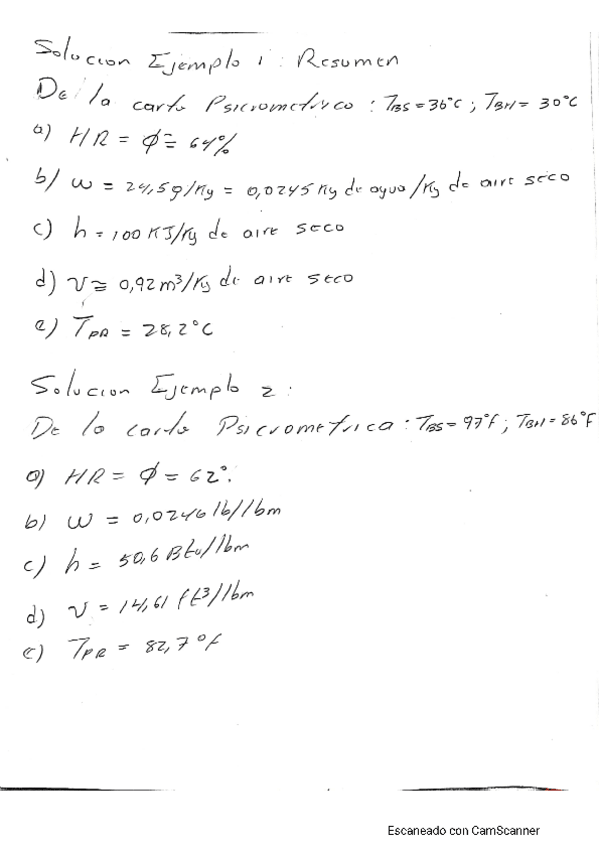 Solucion Ejemplo 1 : Resumen
De la carta Psicrometrica : TBS = 36°C ; TBH = 30°C
a) HR = ϕ ≅ 64%
b) w = 24,5 g/Kg = 0,0245 Kg de agua/Kg de aire seco
c) h = 100 KJ/Kg de aire seco
d) v ≅ 0,92 m³/Kg de aire seco
e) TPR = 28,2°C
Solucion Ejemplo 2 :
De la carta Psicrometrica : TBS = 97°F ; TBH = 86°F
a) HR = ϕ = 62%
b) w = 0,0246 lb/lbm
c) h = 50,6 Btu/lbm
d) v = 14,61 ft³/lbm
e) TPR = 82,7°f
Escaneado con CamScanner